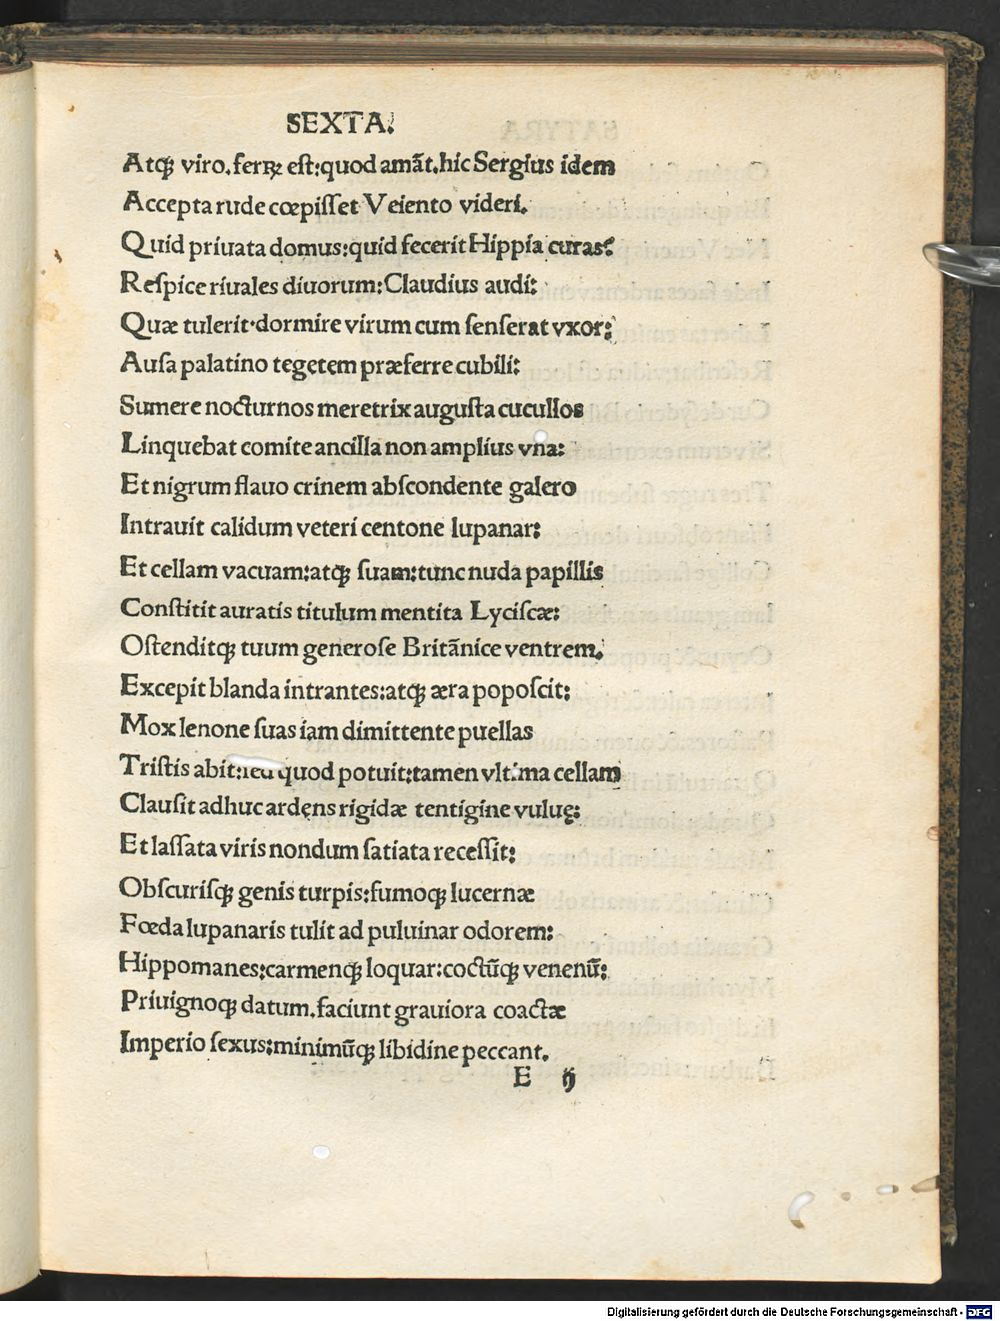 SEXTA.
Atqꝫ viro. ferꝝ est: quod amāt. hic Sergius idem
Accepta rude cœpisset Veiento videri.
Quid priuata domus: quid fecerit Hippia curas?
Respice riuales diuorum: Claudius audi:
Quæ tulerit. dormire virum cum senserat vxor:
Ausa palatino tegetem præferre cubili:
Sumere nocturnos meretrix augusta cucullos
Linquebat comite ancilla non amplius vna:
Et nigrum flauo crinem abscondente galero
Intrauit calidum veteri centone lupanar:
Et cellam vacuam: atqꝫ suam: tunc nuda papillis
Constitit auratis titulum mentita Lyciscæ:
Ostenditqꝫ tuum generose Britānice ventrem.
Excepit blanda intrantes: atqꝫ æra poposcit:
Mox lenone suas iam dimittente puellas
Tristis abit: sed quod potuit: tamen vltima cellam
Clausit adhuc ardens rigidæ tentigine vuluę:
Et lassata viris nondum satiata recessit:
Obscurisqꝫ genis turpis: fumoqꝫ lucernæ
Fœda lupanaris tulit ad puluinar odorem:
Hippomanes: carmenqꝫ loquar: coctūqꝫ venenū:
Priuignoqꝫ datum. faciunt grauiora coactæ
Imperio sexus: minimūqꝫ libidine peccant.
E ij
Digitalisierung gefördert durch die Deutsche Forschungsgemeinschaft - DFG